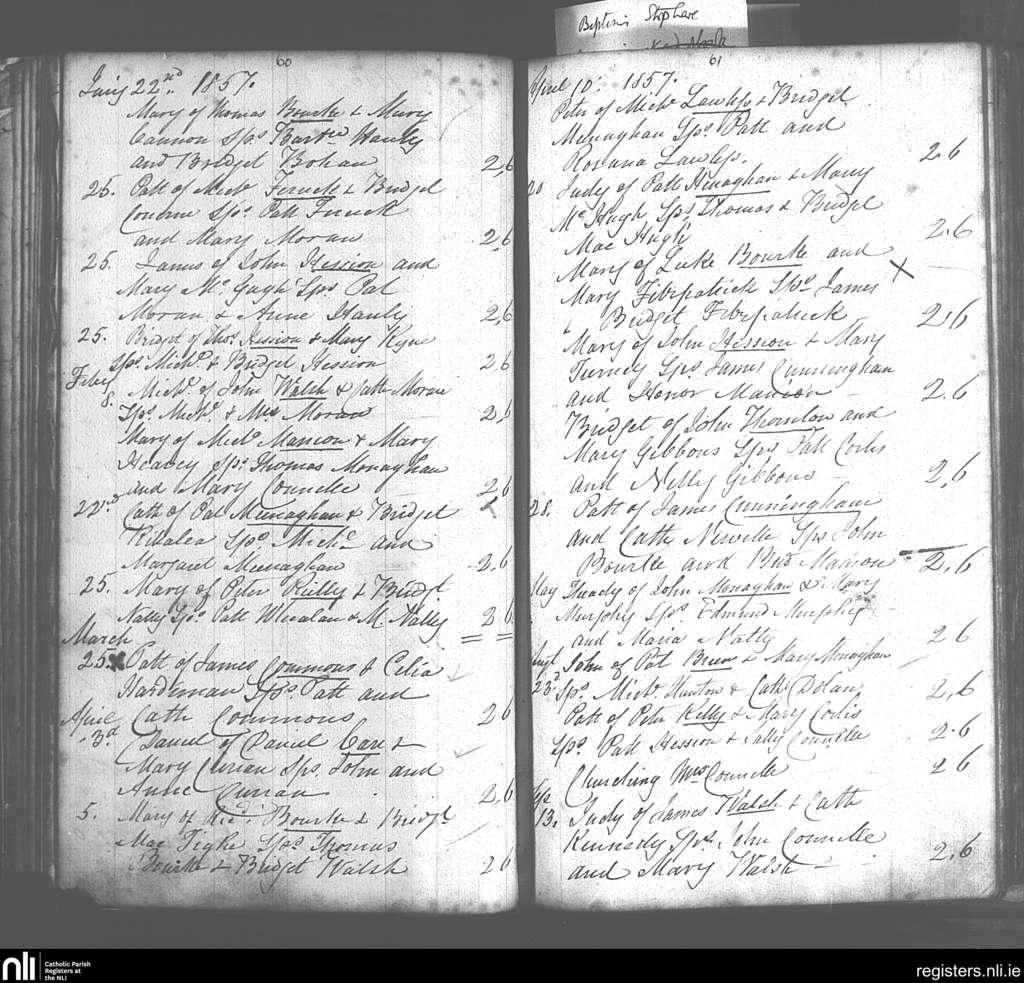 Baptisms
60
22nd 1857.
Mary of Thomas Bourke & Mary
Cannon Sps. Hanly
and Bridget Bohan 2,6
25. Patt of Mich. & Bridget
Sps. Patt
and Mary Moran 2,6
25. James of John Hession and
Mary Mc Sps Pat
Moran & Anne Hanly 2,6
25. Bridget of Thos. Hession & Mary Kyne
Sps. Mich. & Bridget Hession 2 6
8. Mich. of John Walsh & Cath Moran
Sps. Mich. & Mrs Moran 2,6
Mary of Mich. Manion & Mary
Sps. Thomas Monaghan
and Mary Connelle 2 6
22nd Cath of Pat Meenaghan & Bridget
Sps. Mich. and
Margaret Meenaghan 2.6
25. Mary of Peter Reilly & Bridgt
Nally Sps. Patt & M. Nally 2 6
March
25. Patt of James Commons & Celia
Hardeman Sps Patt and
Cath Commons 2 6
April
3d Daniel of Daniel &
Mary Curran Sps. John and
Anne Curran 2,6
5. Mary of Bourke & Bridgt
Mac Tighe Sps. Thomas
Bourke & Bridget Walsh 2 6
61
April 10. 1857.
Peter of Mich. Lawless & Bridget
Menaghan Sps. Patt and
Roxana Lawless. 2.6
20 Judy of Patt Henaghan & Mary
Mc Hugh Sps Thomas & Bridget
Mac Hugh 2.6
Mary of Luke Bourke and
Mary Fitzpatrick Sps. James
Bridget Fitzpatrick 2,6
Mary of John Hession & Mary
Tierney Sps James Cunningham
and Honor Manion 2.6
Bridget of John Thornton and
Mary Gibbons Sps Patt
and Nelly Gibbons 2,6
28. Patt of James Cunningham
and Cath Sps John
Bourke and Manion 2.6
May of John Monaghan & Mary
Murphy Sps. Edmund Murphy
and Maria Nally 2 6
John of Pat & Mary Monaghan
23d Sps. Mich. & Cath Dolan 2,6
Patt of Peter Kelly & Mary
Sps. Patt Hession & Sally Connelle 2.6
Churching Mrs Connelle 2 6
Sep
13. Judy of James Walsh & Cath
Kennedy Sps. John Connelle
and Mary Walsh 2,6
nli
Catholic Parish
Registers at
the NLI
registers.nli.ie